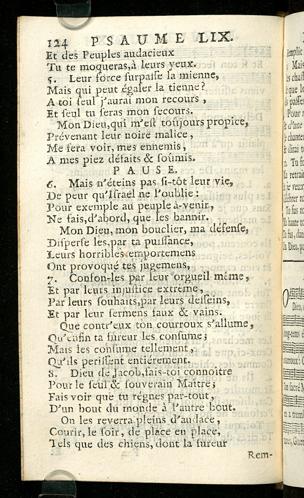 124 PSAUME LIX.
Et des Peuples audacieux
Tu te moqueras, à leurs yeux.
5. Leur force surpasse la mienne,
Mais qui peut égaler la tienne?
A toi seul j'aurai mon recours,
Et seul tu seras mon secours.
Mon Dieu, qui m'est toûjours propice,
Prévenant leur noire malice,
Me fera voir, mes ennemis,
A mes piez défaits & soûmis.
PAUSE.
6. Mais n'éteins pas si-tôt leur vie,
De peur qu'Israël ne l'oublie;
Pour exemple au peuple à-venir,
Ne fais, d'abord, que les bannir.
Mon Dieu, mon bouclier, ma défense,
Disperse les, par ta puissance,
Leurs horribles emportemens
Ont provoqué tes jugemens,
7. Confon-les par leur orgueil même,
Et par leur injustice extrême,
Par leurs souhaits, par leurs desseins,
Et par leur sermens faux & vains.
Que contr'eux ton courroux s'allume,
Qu'enfin ta fureur les consume;
Mais les consume tellement,
Qu'ils perissent entiérement.
8. Dieu de Jacob, fais-toi connoître
Pour le seul & souverain Maître;
Fais voir que tu régnes par-tout,
D'un bout du monde à l'autre bout.
On les reverra pleins d'audace,
Courir, le soir, de place en place,
Tels que des chiens, dont la fureur
Rem-